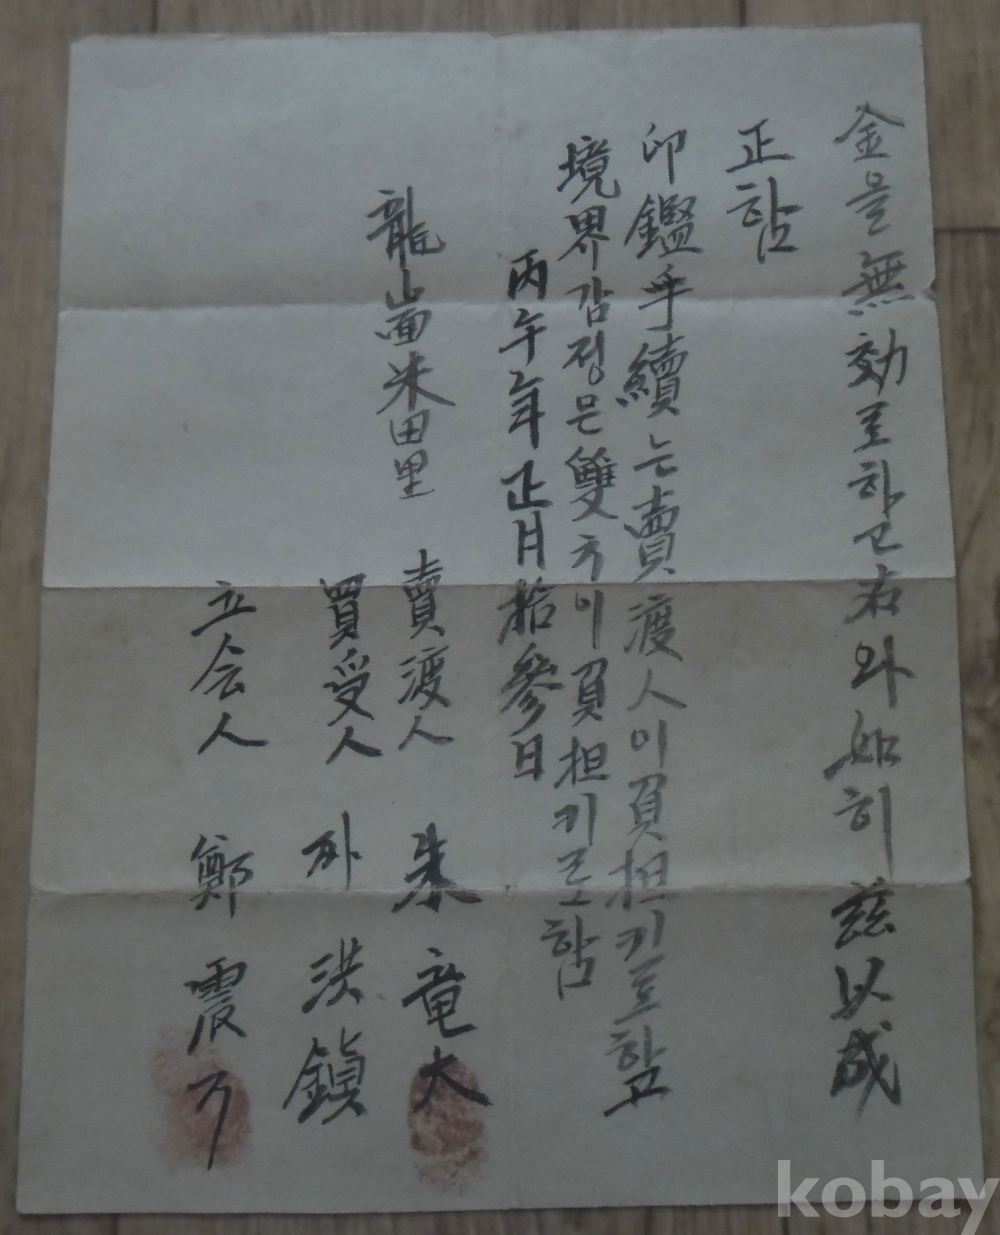 金을無効로하고右와如히玆以成
正함
印鑑手續는賣渡人이負担키로함고
境界감정은雙方이負担키로함
丙午年正月拾參日
龍山面米田里 賣渡人 朱竜大
買受人 朴洪鎭
立会人 鄭震万
kobay